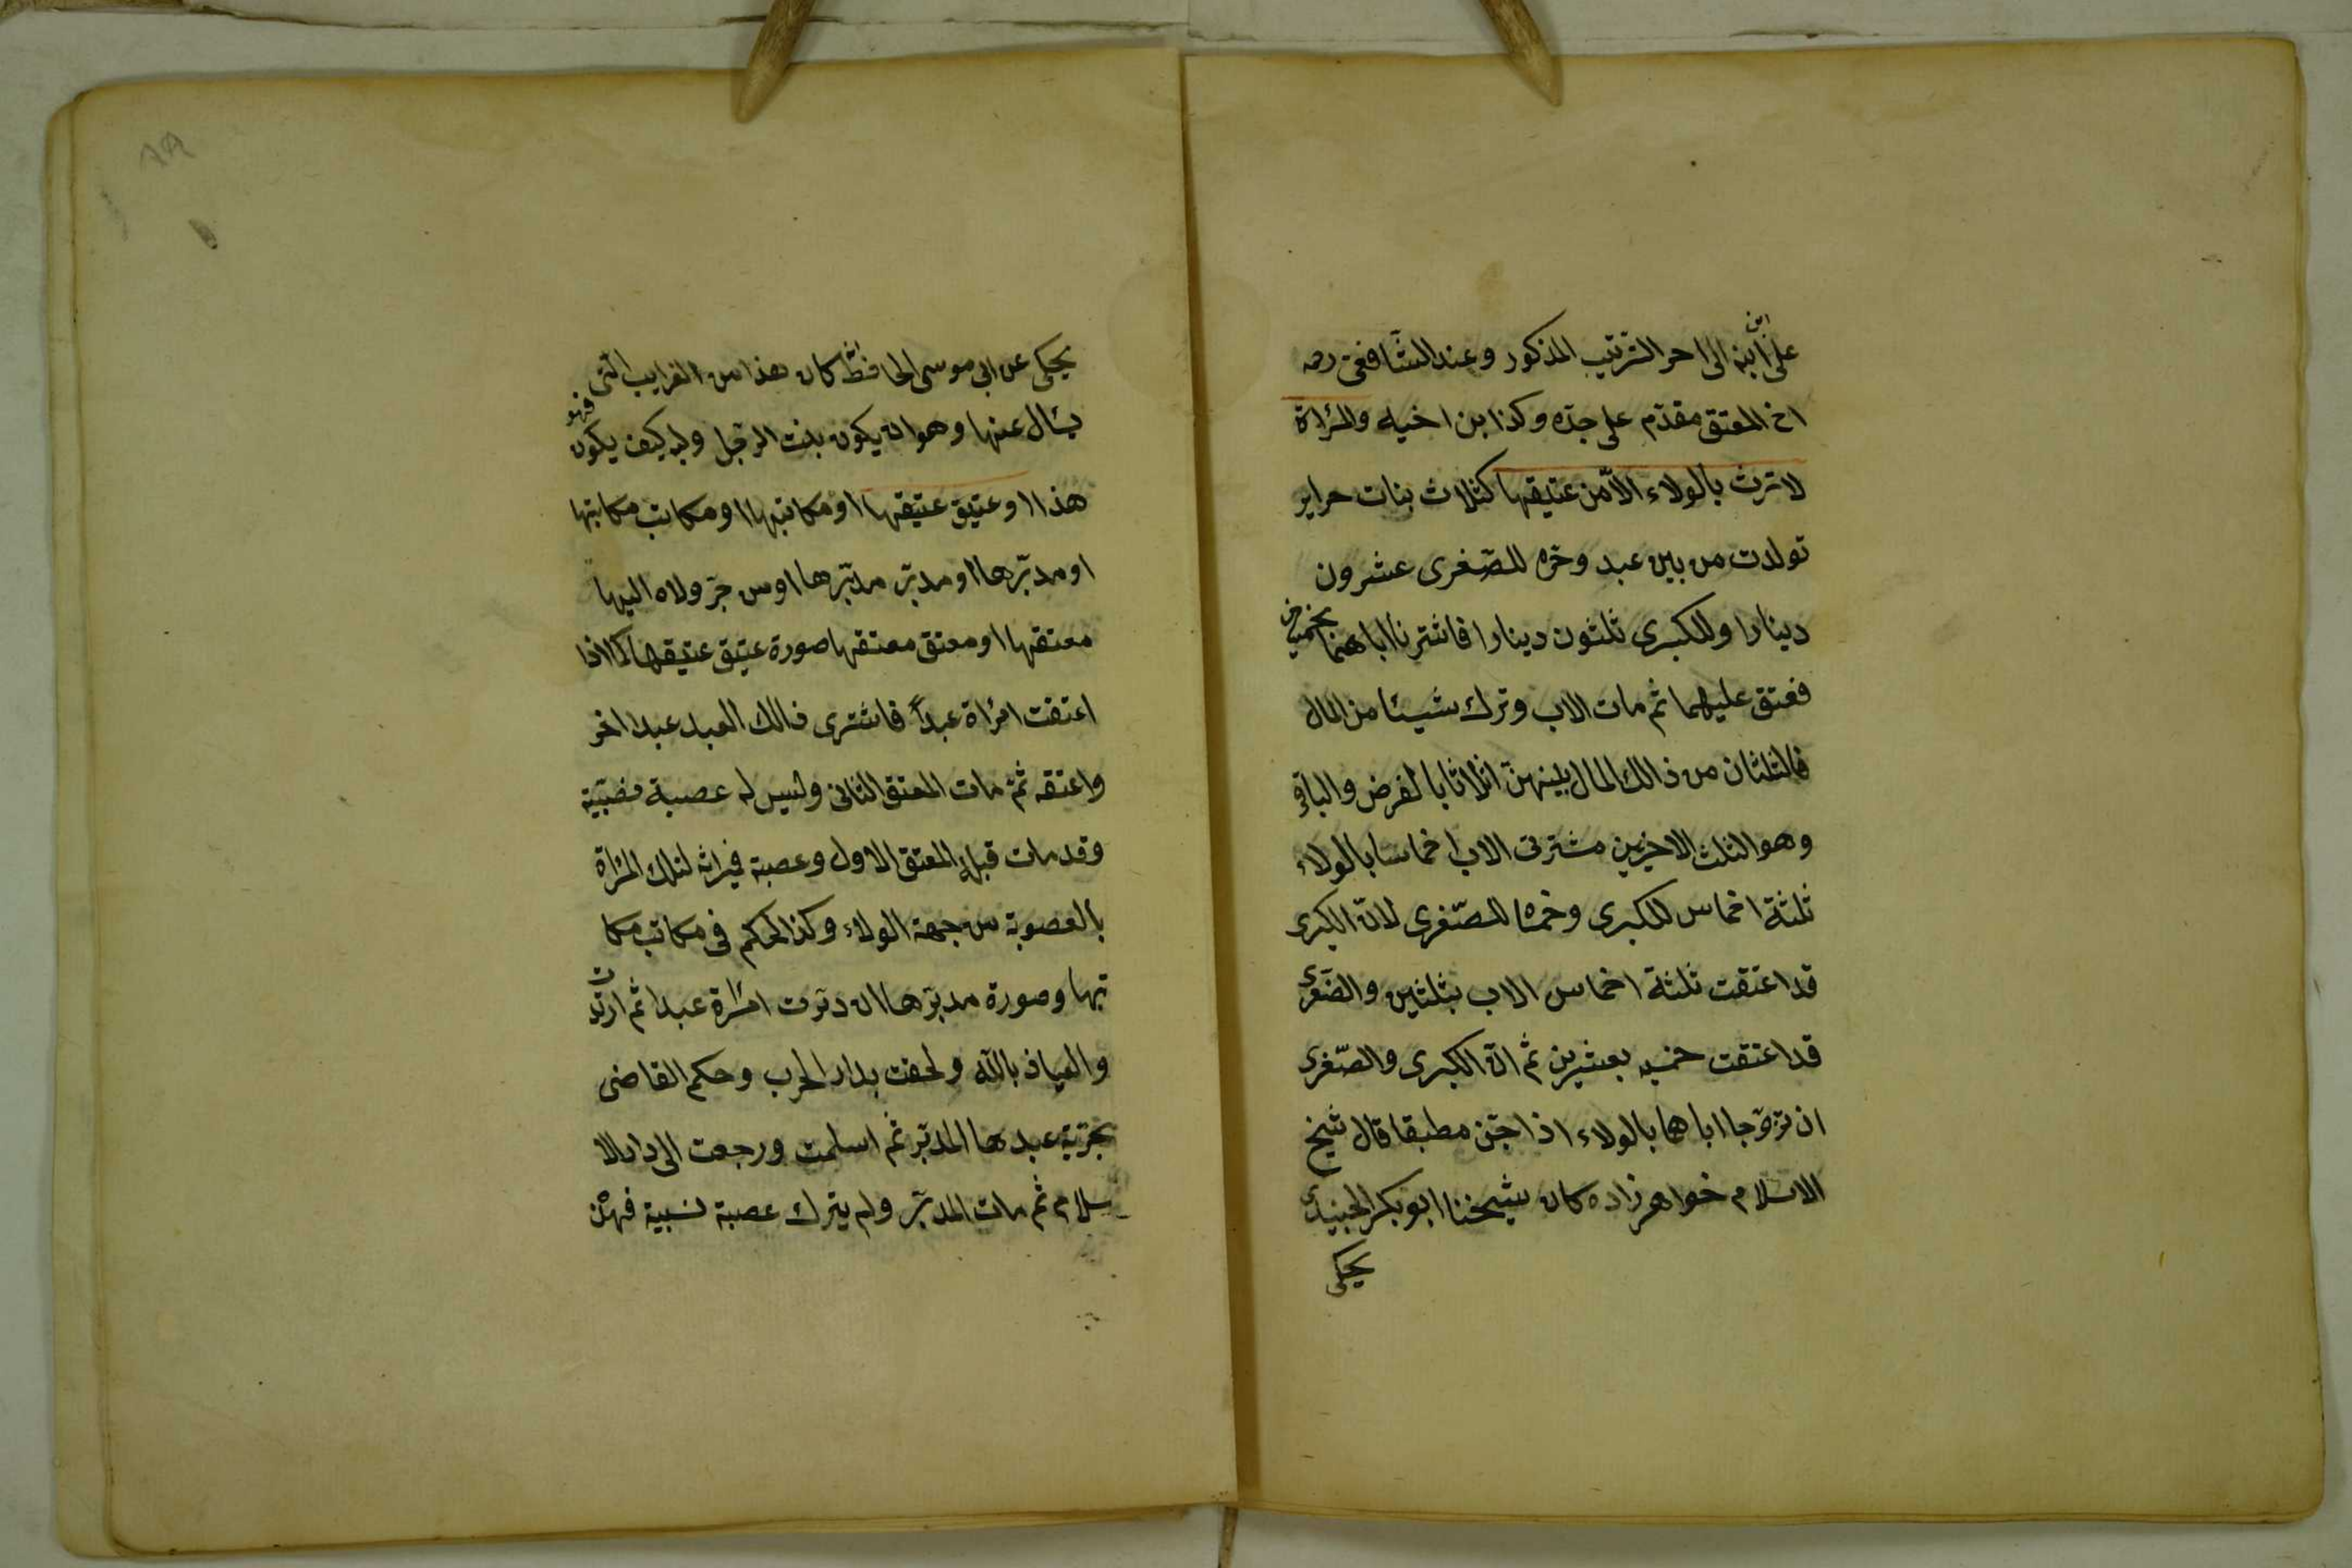 على ابن ابنه الى اخر الترتيب المذكور وعند الشافعى رحه
اخ المعتق مقدّم على جدّه وكذا بن اخيه والمرأة
لا ترث بالولاء الاّ من عتيقها كثلاث بنات حراير
تولدت من بين عبد وحرّه للصّغرى عشرون
دينارا وللكبرى ثلثون دينارا فاشترتا اباهما بخمسين
فعتق عليهما ثم مات الاب وترك شيئا من المال
فالثلثان من ذالك المال بينهنّ اثلاثا بالفرض والباقى
وهو الثلث الاخر بين مشترتى الاب اخماسا بالولاء
ثلثة اخماس للكبرى وخمساه للصّغرى لانّ الكبرى
قد اعتقت ثلثة اخماس الاب بثلثين والصّغرى
قد اعتقت خمسيه بعشرين ثم انّ الكبرى والصّغرى
ان تزوّجا اباها بالولاء اذا جنّ مطبقا قال شيخ
الاسلام خواهر زاده كان شيخنا ابو بكر الجنيدى
يحكى
يحكى عن ابى موسى الحافظ انه كان هذا من الغرايب التى
يسأل عنها وهو ان يكون بنت الرجل وليه كيف يكون فهو
هذا او عتيق عتيقها او مكاتبها او مكاتب مكاتبها
او مدبّرها او مدبّر مدبّرها او من جرّ ولاه اليها
معتقها او معتق معتقها صورة عتيق عتيقها كما اذا
اعتقت امرأة عبداً فاشترى ذالك العبد عبدا اخر
واعتقه ثمّ مات المعتق الثانى وليس له عصبة نسبيّة
وقد مات قبله المعتق الاول وعصبة فميراثه لتلك المرأة
بالعصوبة من جهة الولاء وكذا الحكم فى مكاتب مكا
تبها وصورة مدبّرها ان دبّرت امرأة عبدا ثم ارتدّت
والعياذ بالله ولحقت بدار الحرب وحكم القاضى
بحرّية عبدها المدبّر ثم اسلمت ورجعت الى دار الا
سلام ثم مات المدبّر ولم يترك عصبة نسبية فهذه